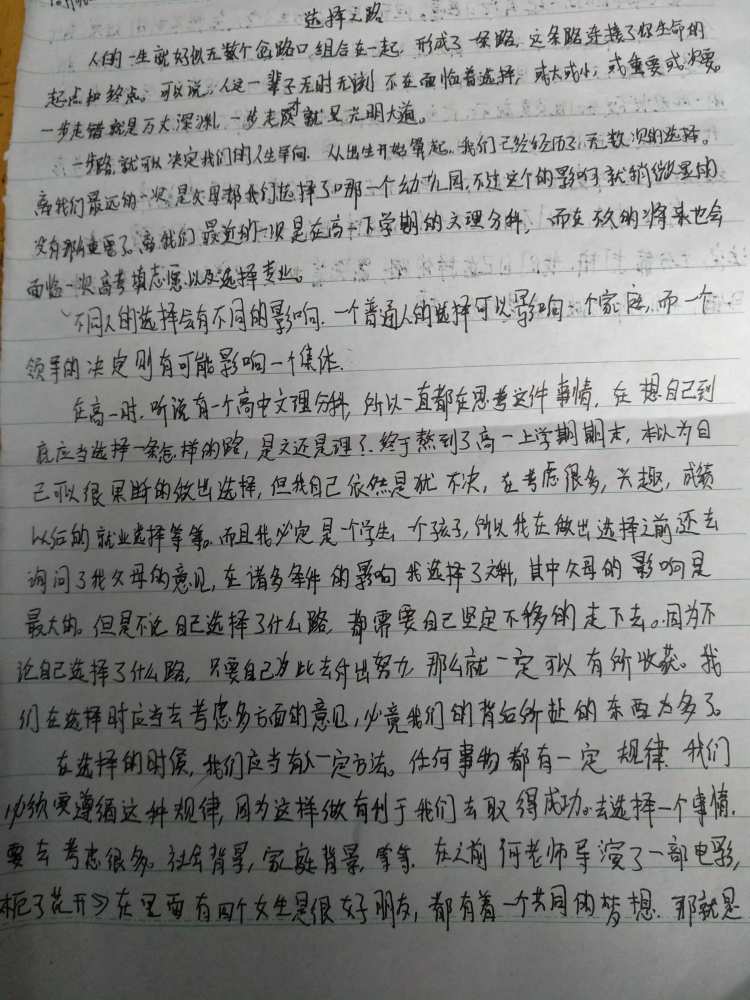 选择之路
人的一生就好似无数个岔路口组合在一起,形成了一条路,这条路连接了你生命的
起点和终点。可以说,人这一辈子无时无刻不在面临着选择,或大或小,或重要或次要。
一步走错就是万丈深渊,一步走对就是光明大道。
一步路就可以决定我们的人生导向,从出生开始算起,我们已经经历了无数次的选择。
离我们最远的一次是父母帮我们选择了哪一个幼儿园,不过这个的影响就稍微显的
没有那么重要了。离我们最近的一次是在高一下学期的文理分科,而在不久的将来也会
面临一次高考填志愿以及选择专业。
不同人的选择会有不同的影响,一个普通人的选择可以影响一个家庭,而一个
领导的决定则有可能影响一个集体。
在高一时,听说有一个高中文理分科,所以一直都在思考这件事情,在想自己到
底应当选择一条怎样的路,是文还是理?终于熬到了高一上学期期末,本以为自
己可以很果断的做出选择,但我自己依然是犹不决,在考虑很多,兴趣,成绩
以后的就业选择等等。而且我必定是个学生,一个孩子,所以我在做出选择之前还去
询问了我父母的意见,在诸多条件的影响我选择了文科,其中父母的影响是
最大的。但是不论自己选择了什么路,都需要自己坚定不移的走下去。因为不
论自己选择了什么路,只要自己为此去付出努力,那么就一定可以有所收获。我
们在选择时应当去考虑多方面的意见,必竟我们的背后所扯的东西为多了。
在选择的时候,我们应当有一定方法。任何事物都有一定规律,我们
必须要遵循这种规律,因为这样做有利于我们去取得成功。去选择一个事情,
要去考虑很多。社会背景,家庭背景,等等。在之前何老师导演了一部电影,
栀子花开》在里面有四个女生是很好朋友,都有着一个共同的梦想,那就是